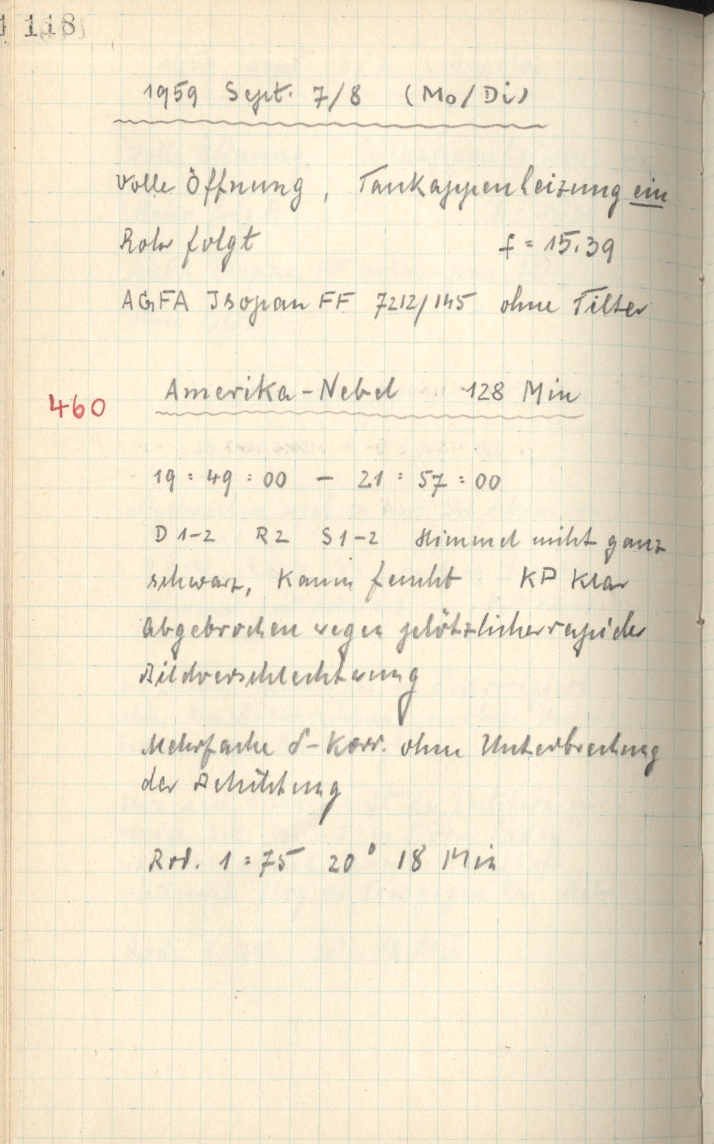 118
1959 Sept. 7/8 (Mo/Di)
Volle Öffnung, Taukappenheizung ein
Rohr folgt f = 15.39
AGFA Isopan FF 7212/145 ohne Filter
460 Amerika-Nebel 128 Min
19:49:00 – 21:57:00
D 1-2 R 2 S 1-2 Himmel nicht ganz
schwarz, kaum feucht KP klar
abgebrochen wegen plötzlicher rapider
Bildverschlechterung
Mehrfache δ-Korr. ohne Unterbrechung
der Belichtung
Rod. 1:75 20° 18 Min